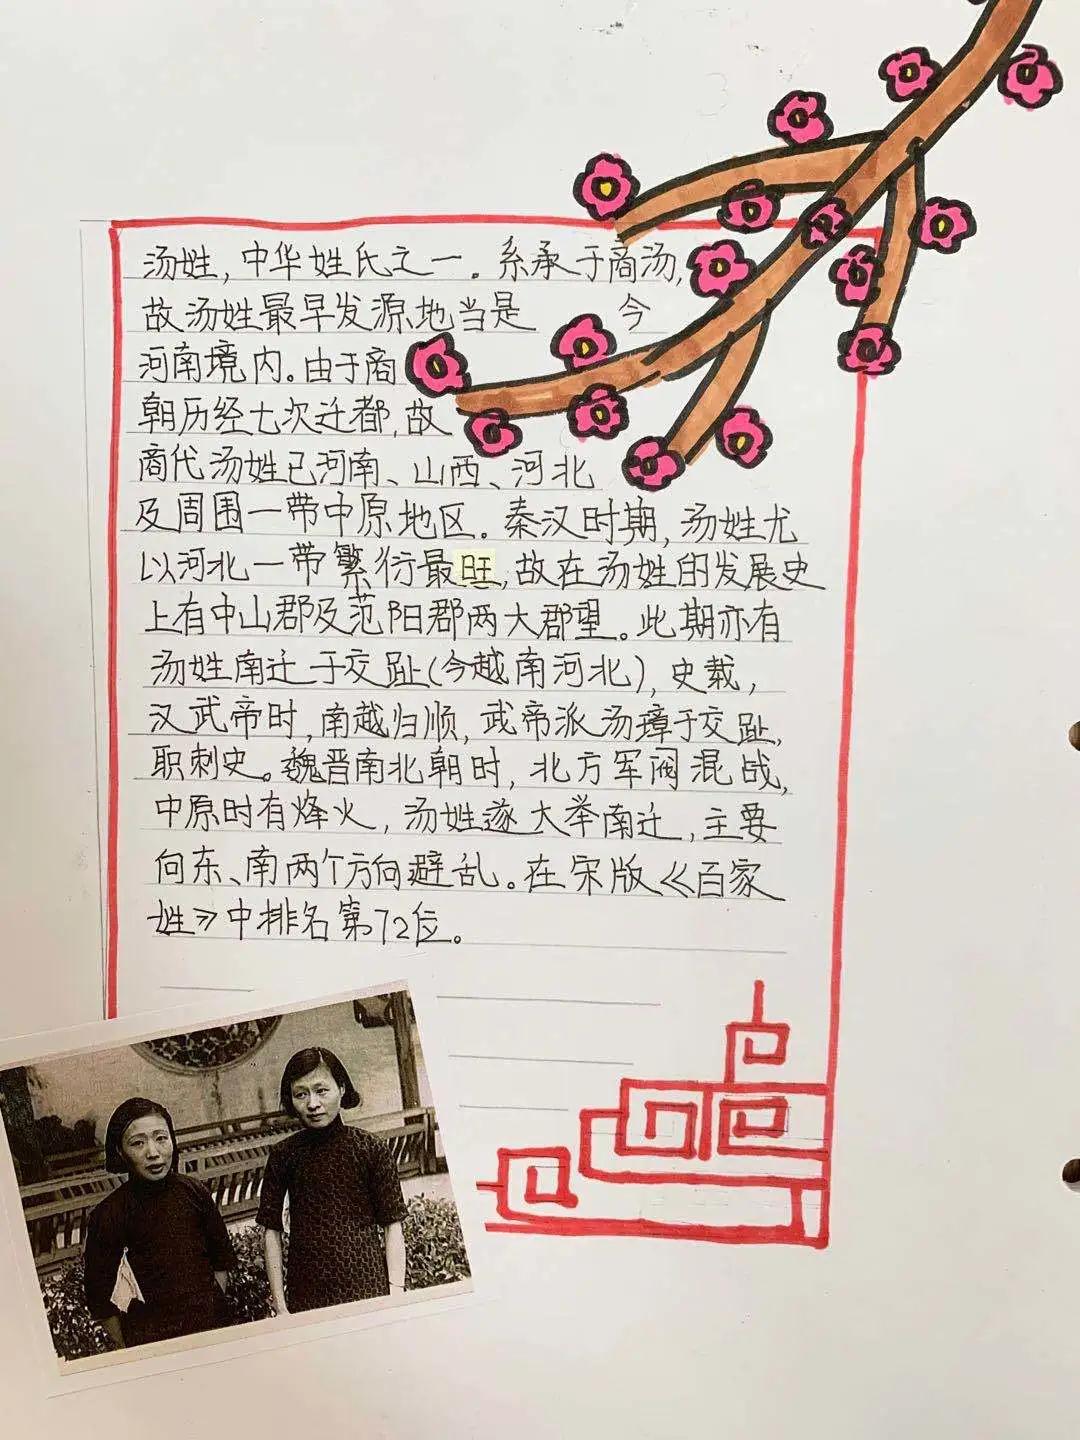 汤姓，中华姓氏之一。系承于商汤，
故汤姓最早发源地当是 今
河南境内。由于商
朝历经七次迁都，故
商代汤姓已河南、山西、河北
及周围一带中原地区。秦汉时期，汤姓尤
以河北一带繁衍最旺，故在汤姓的发展史
上有中山郡及范阳郡两大郡望。此期亦有
汤姓南迁于交趾(今越南河北)，史载，
汉武帝时，南越归顺，武帝派汤璋于交趾，
职刺史。魏晋南北朝时，北方军阀混战，
中原时有烽火，汤姓遂大举南迁，主要
向东、南两个方向避乱。在宋版《百家
姓》中排名第72位。